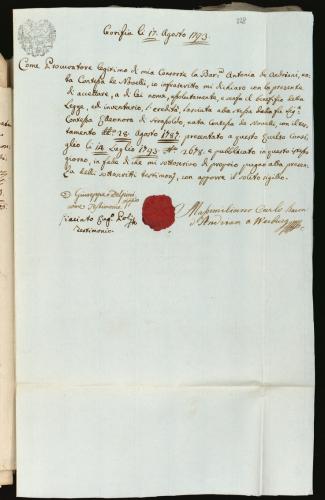 228
Gorizia li 17. Agosto 1793
Come Procuratore legitimo di mia Consorte la Bar. Antonia de Andriani, na-
ta Contessa de Novelli, io infrascritto mi dichiaro con la presente
di accettare, a di lei nome, assolutamente, e senza il beneficio della
Legge, ed inventario, l'eredità, lasciata alla stessa dalla fu Sig.
Contessa Eleonora de nata Contessa de Novelli, con il tes-
tamento 28 Agosto 1787. presentato a questo Consi-
glio li 12 Luglio 1793 1678. e pubblicato in questo stesso
giorno, in fede di che mi sottoscrivo di proprio pugno alla presen-
za delli sottoscritti testimonj, con apporre il solito sigillo.
Giuseppe
come Testimonio
Giacinto
testimonio
Massimiliano Carlo Baron